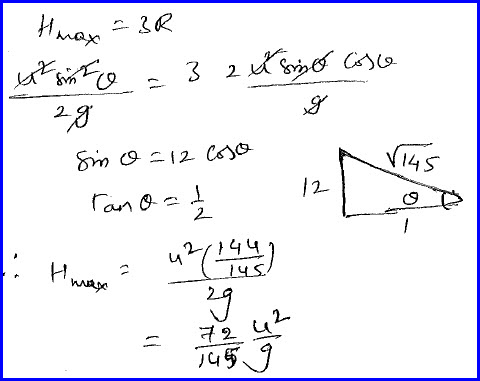 H_max = 3R
u² sin² θ / 2g = 3 2 u² sin θ cos θ / g
sin θ = 12 cos θ
tan θ = 1/2
12 √145 θ 1
∴ H_max = u² (144/145) / 2g
= 72/145 u²/g